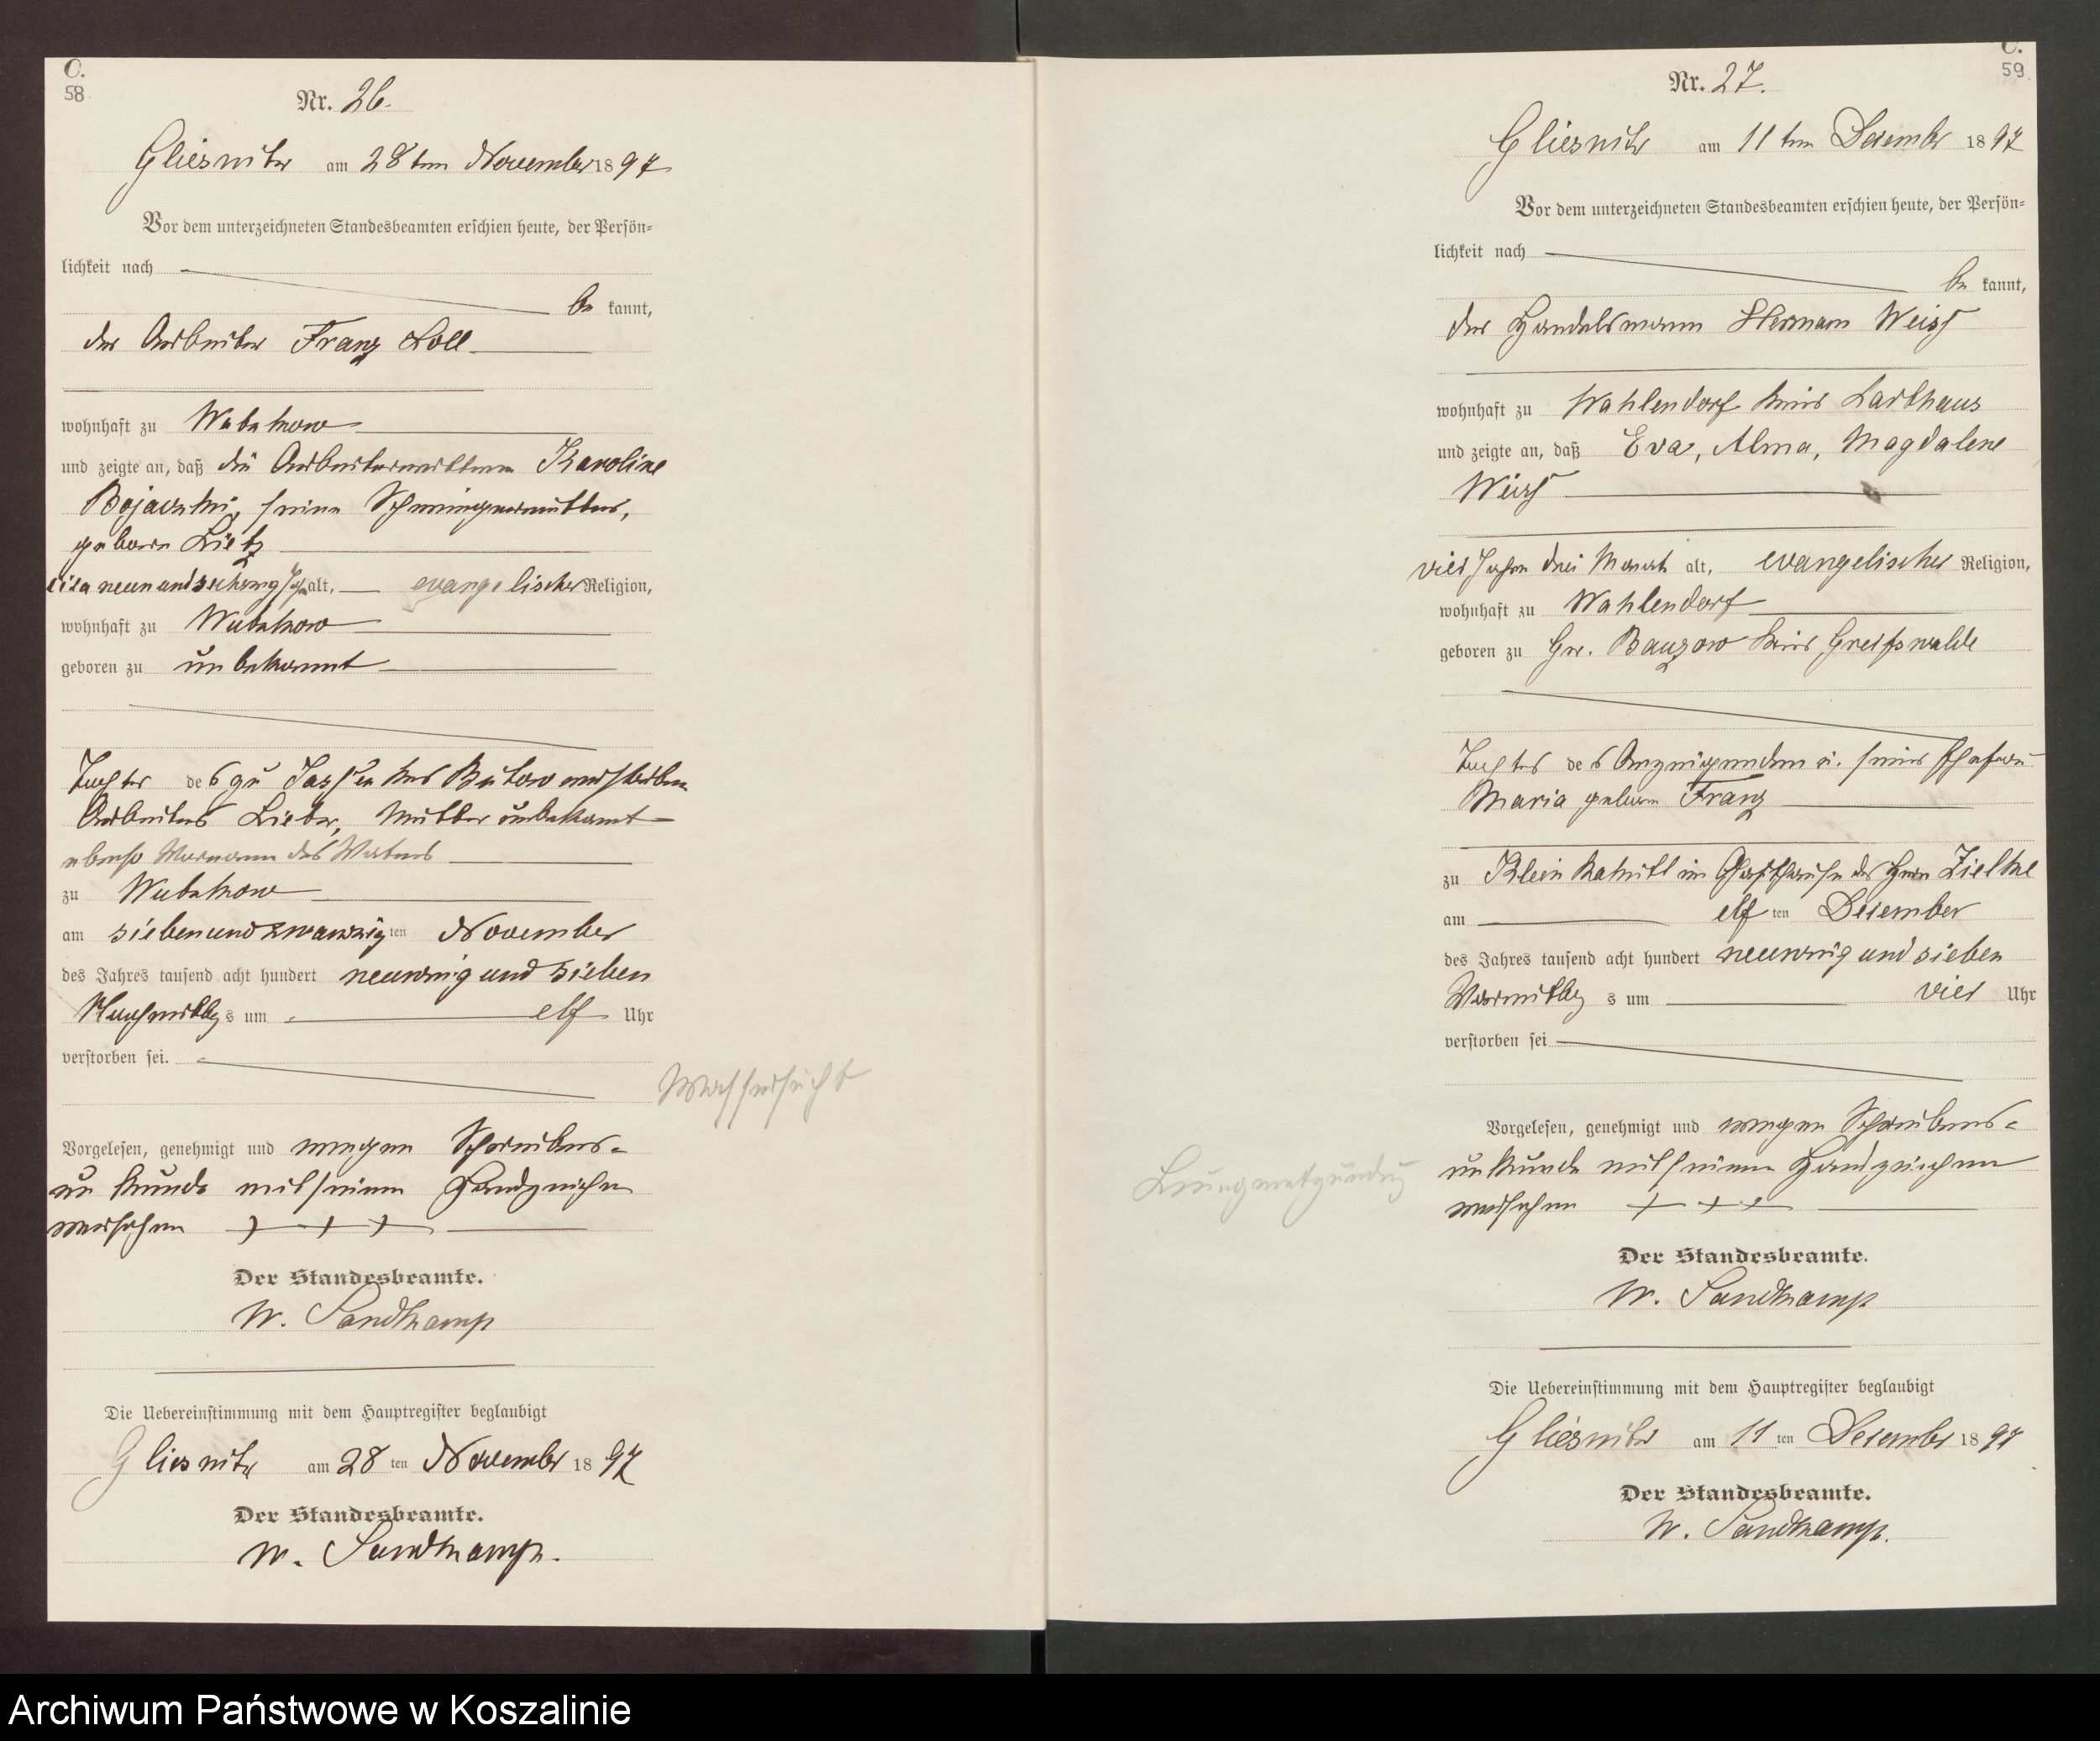 C.
58
Nr. 26.
Gliesnitz am 28ten November 1897
Vor dem unterzeichneten Standesbeamten erschien heute, der Persön-
lichkeit nach
be kannt,
der Arbeiter Franz Koll
wohnhaft zu Wutzkow
und zeigte an, daß die Arbeiterwittwe Karoline
seine Schwiegermutter,
geborn Lietz
cica neunundsechzig Jahr alt, evangelischer Religion,
wohnhaft zu Wutzkow
geboren zu unbekannt
Tochter des zu Jassen Krs Bütow verstorbenen
Arbeiters Mutter unbekannt
ebenso Vorname des Vaters
zu Wutzkow
am siebenundzwanzigten November
des Jahres tausend acht hundert neunzig und sieben
Nachmittags um elf Uhr
verstorben sei.
Wassersucht
Vorgelesen, genehmigt und wegen Schreibens-
unkunde mit seinem Handzeichen
versehen + + +
Der Standesbeamte.
W. Sandkamp
Die Uebereinstimmung mit dem Hauptregister beglaubigt
Gliesnitz am 28ten November 1897
Der Standesbeamte.
W. Sandkamp.
C.
59
Nr. 27.
Gliesnitz am 11ten Dezember 1897
Vor dem unterzeichneten Standesbeamten erschien heute, der Persön-
lichkeit nach
be kannt,
der Handelsmann Hermann Weiss
wohnhaft zu Wahlendorf Kreis
und zeigte an, daß Eva, Alma, Magdalene
Weiss
vier Jahre drei Monat alt, evangelischer Religion,
wohnhaft zu Wahlendorf
geboren zu Gr. Kreis Greifswalde
Tochter des Anzeigenden u. seiner Ehefrau
Maria geborn Franz
zu Klein im Gasthause des Herrn Zielke
am elf ten Dezember
des Jahres tausend acht hundert neunzig und sieben
Vormittags um vier Uhr
verstorben sei
Lungenentzündung
Vorgelesen, genehmigt und wegen Schreibens-
unkunde mit seinem Handzeichen
versehen + + +
Der Standesbeamte.
W. Sandkamp
Die Uebereinstimmung mit dem Hauptregister beglaubigt
Gliesnitz am 11ten Dezember 1897
Der Standesbeamte.
W. Sandkamp.
Archiwum Państwowe w Koszalinie